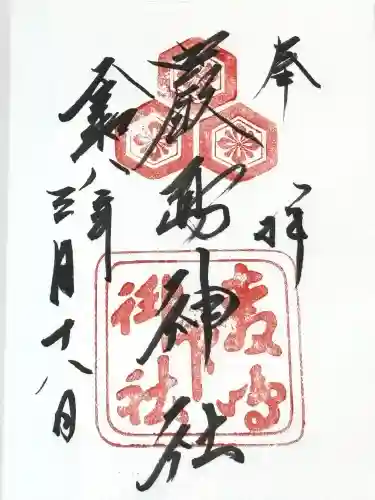 奉拝
厳島神社
令和八年
三月十八日
厳島
神社